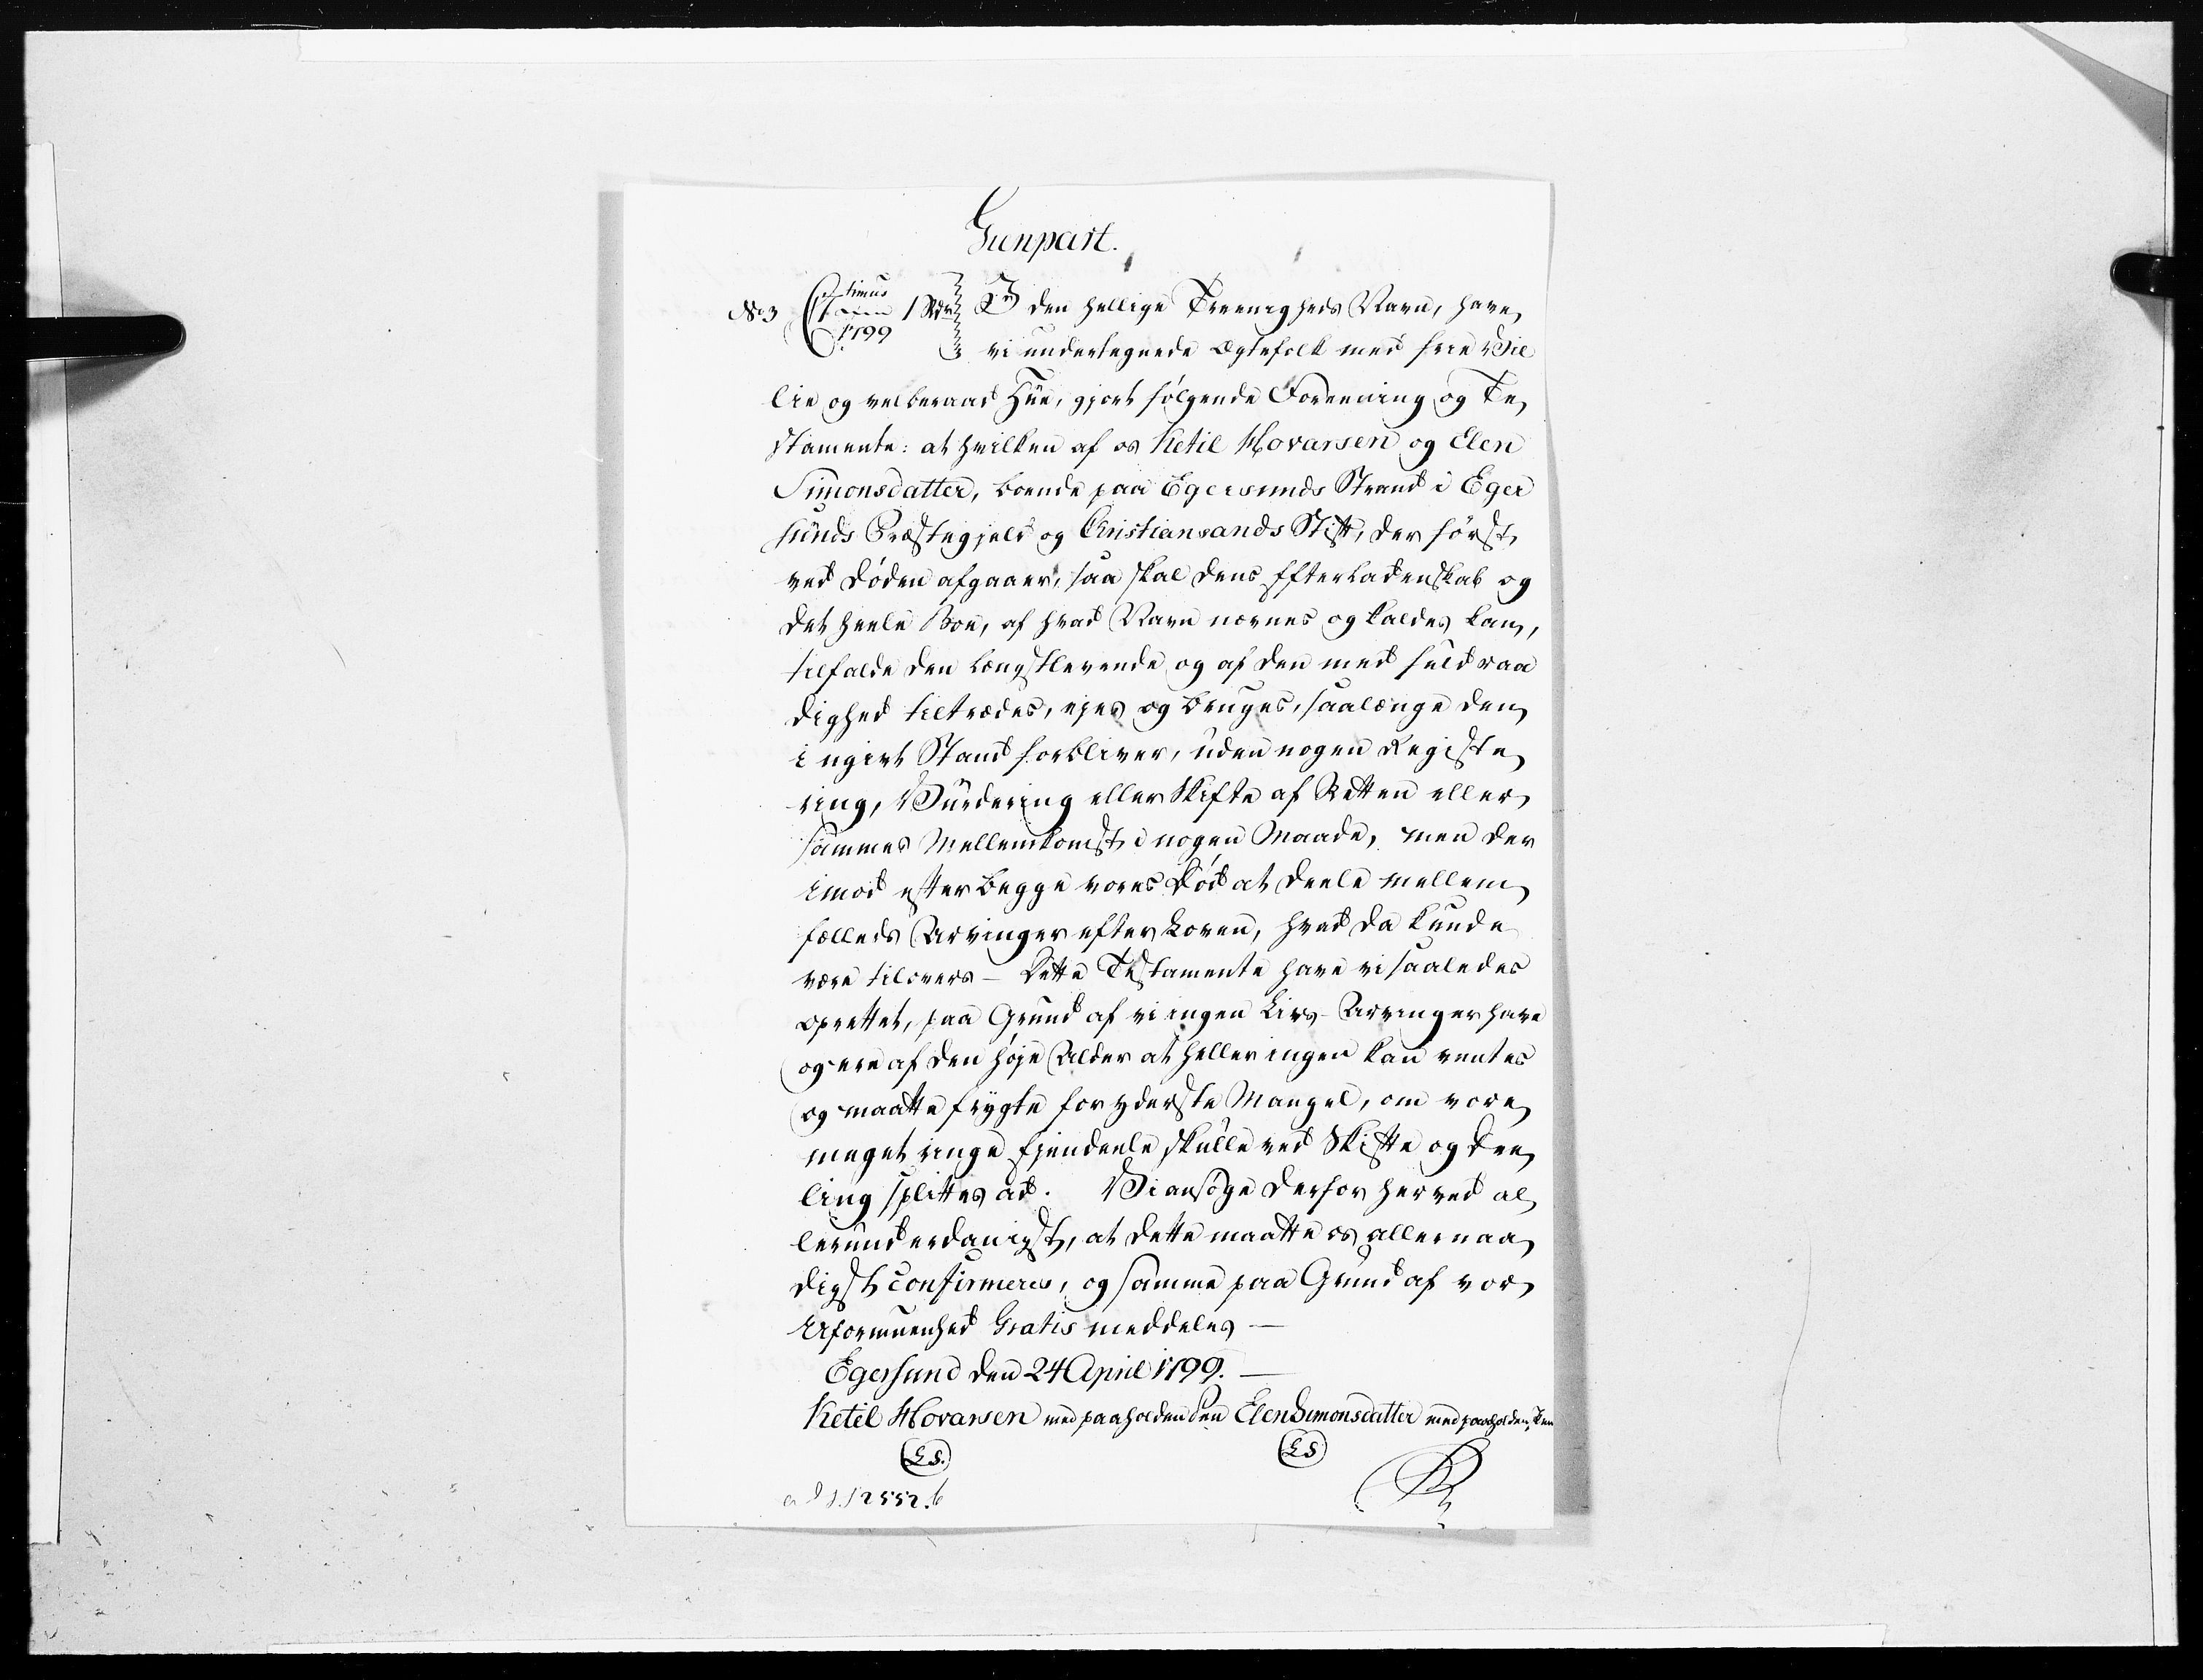 Genpart.
No 3 1 Rdr I den hellige Treenigheds Navn, have
1799 vi undertegnede Ægtefolk med frie Vil
lie og velberaad Hue, gjort følgende Forening og Te
stamente: at hvilken af os Ketil Hovarsen og Elen
Simonsdatter, boende paa Egersunds Strand i Eger
sunds Præstegjeld og Christiansands Stift, der først
ved Døden afgaaer, saa skal dens Efterladenskab og
det heele Boe, af hvad Navn nævnes og kaldes kan,
tilfalde den længstlevende og af den med fuld raa
dighed tiltrædes, ejes og bruges, saalænge den
i ugivt Stand forbliver, uden nogen Registe
ring, Vurdering eller Skifte af Retten eller
sammes Mellemkomst i nogen Maade, men der
imod efter begge vores Død at deele mellem
fælleds Arvinger efter Loven, hvad da kunde
være tilovers - Dette Testamente have vi saaledes
oprettet, paa Grund af vi ingen Livs-Arvinger have
og ere af den høje Alder at heller ingen kan ventes
og maatte frygte for yderste Mangel, om vore
meget ringe Ejendeele skulle ved Skifte og Dee
ling splittes ad. Vi ansøge derfor herved al
lerunderdanigst, at dette maatte os allernaa
digst confirmeres, og samme paa Grund af vor
Uformuenhed Gratis meddeles —
Egersund den 24 April 1799. —
Ketil Hovarsen med paaholden Pen Elen Simonsdatter med paaholden Pen
(L.S.) (L.S)
ad 12552.b